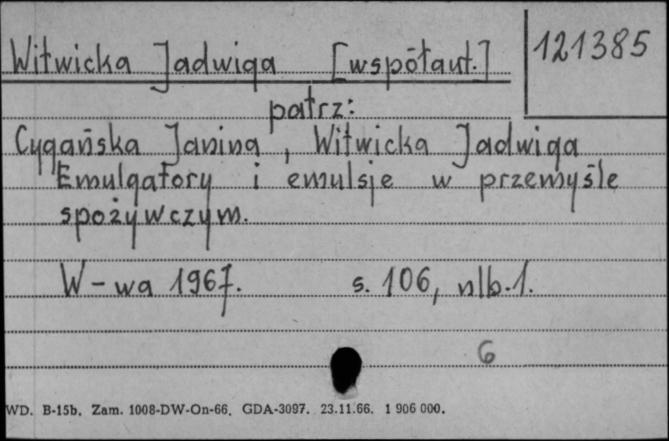 Witwicka Jadwiga [współaut.] 121385
patrz:
Cygańska Janina, Witwicka Jadwiga
Emulgatory i emulsje w przemyśle
spożywczym.
W-wa 1967. s. 106, nlb. 1.
6
WD. B-15b. Zam. 1008-DW-On-66. GDA-3097. 23.11.66. 1 906 000.